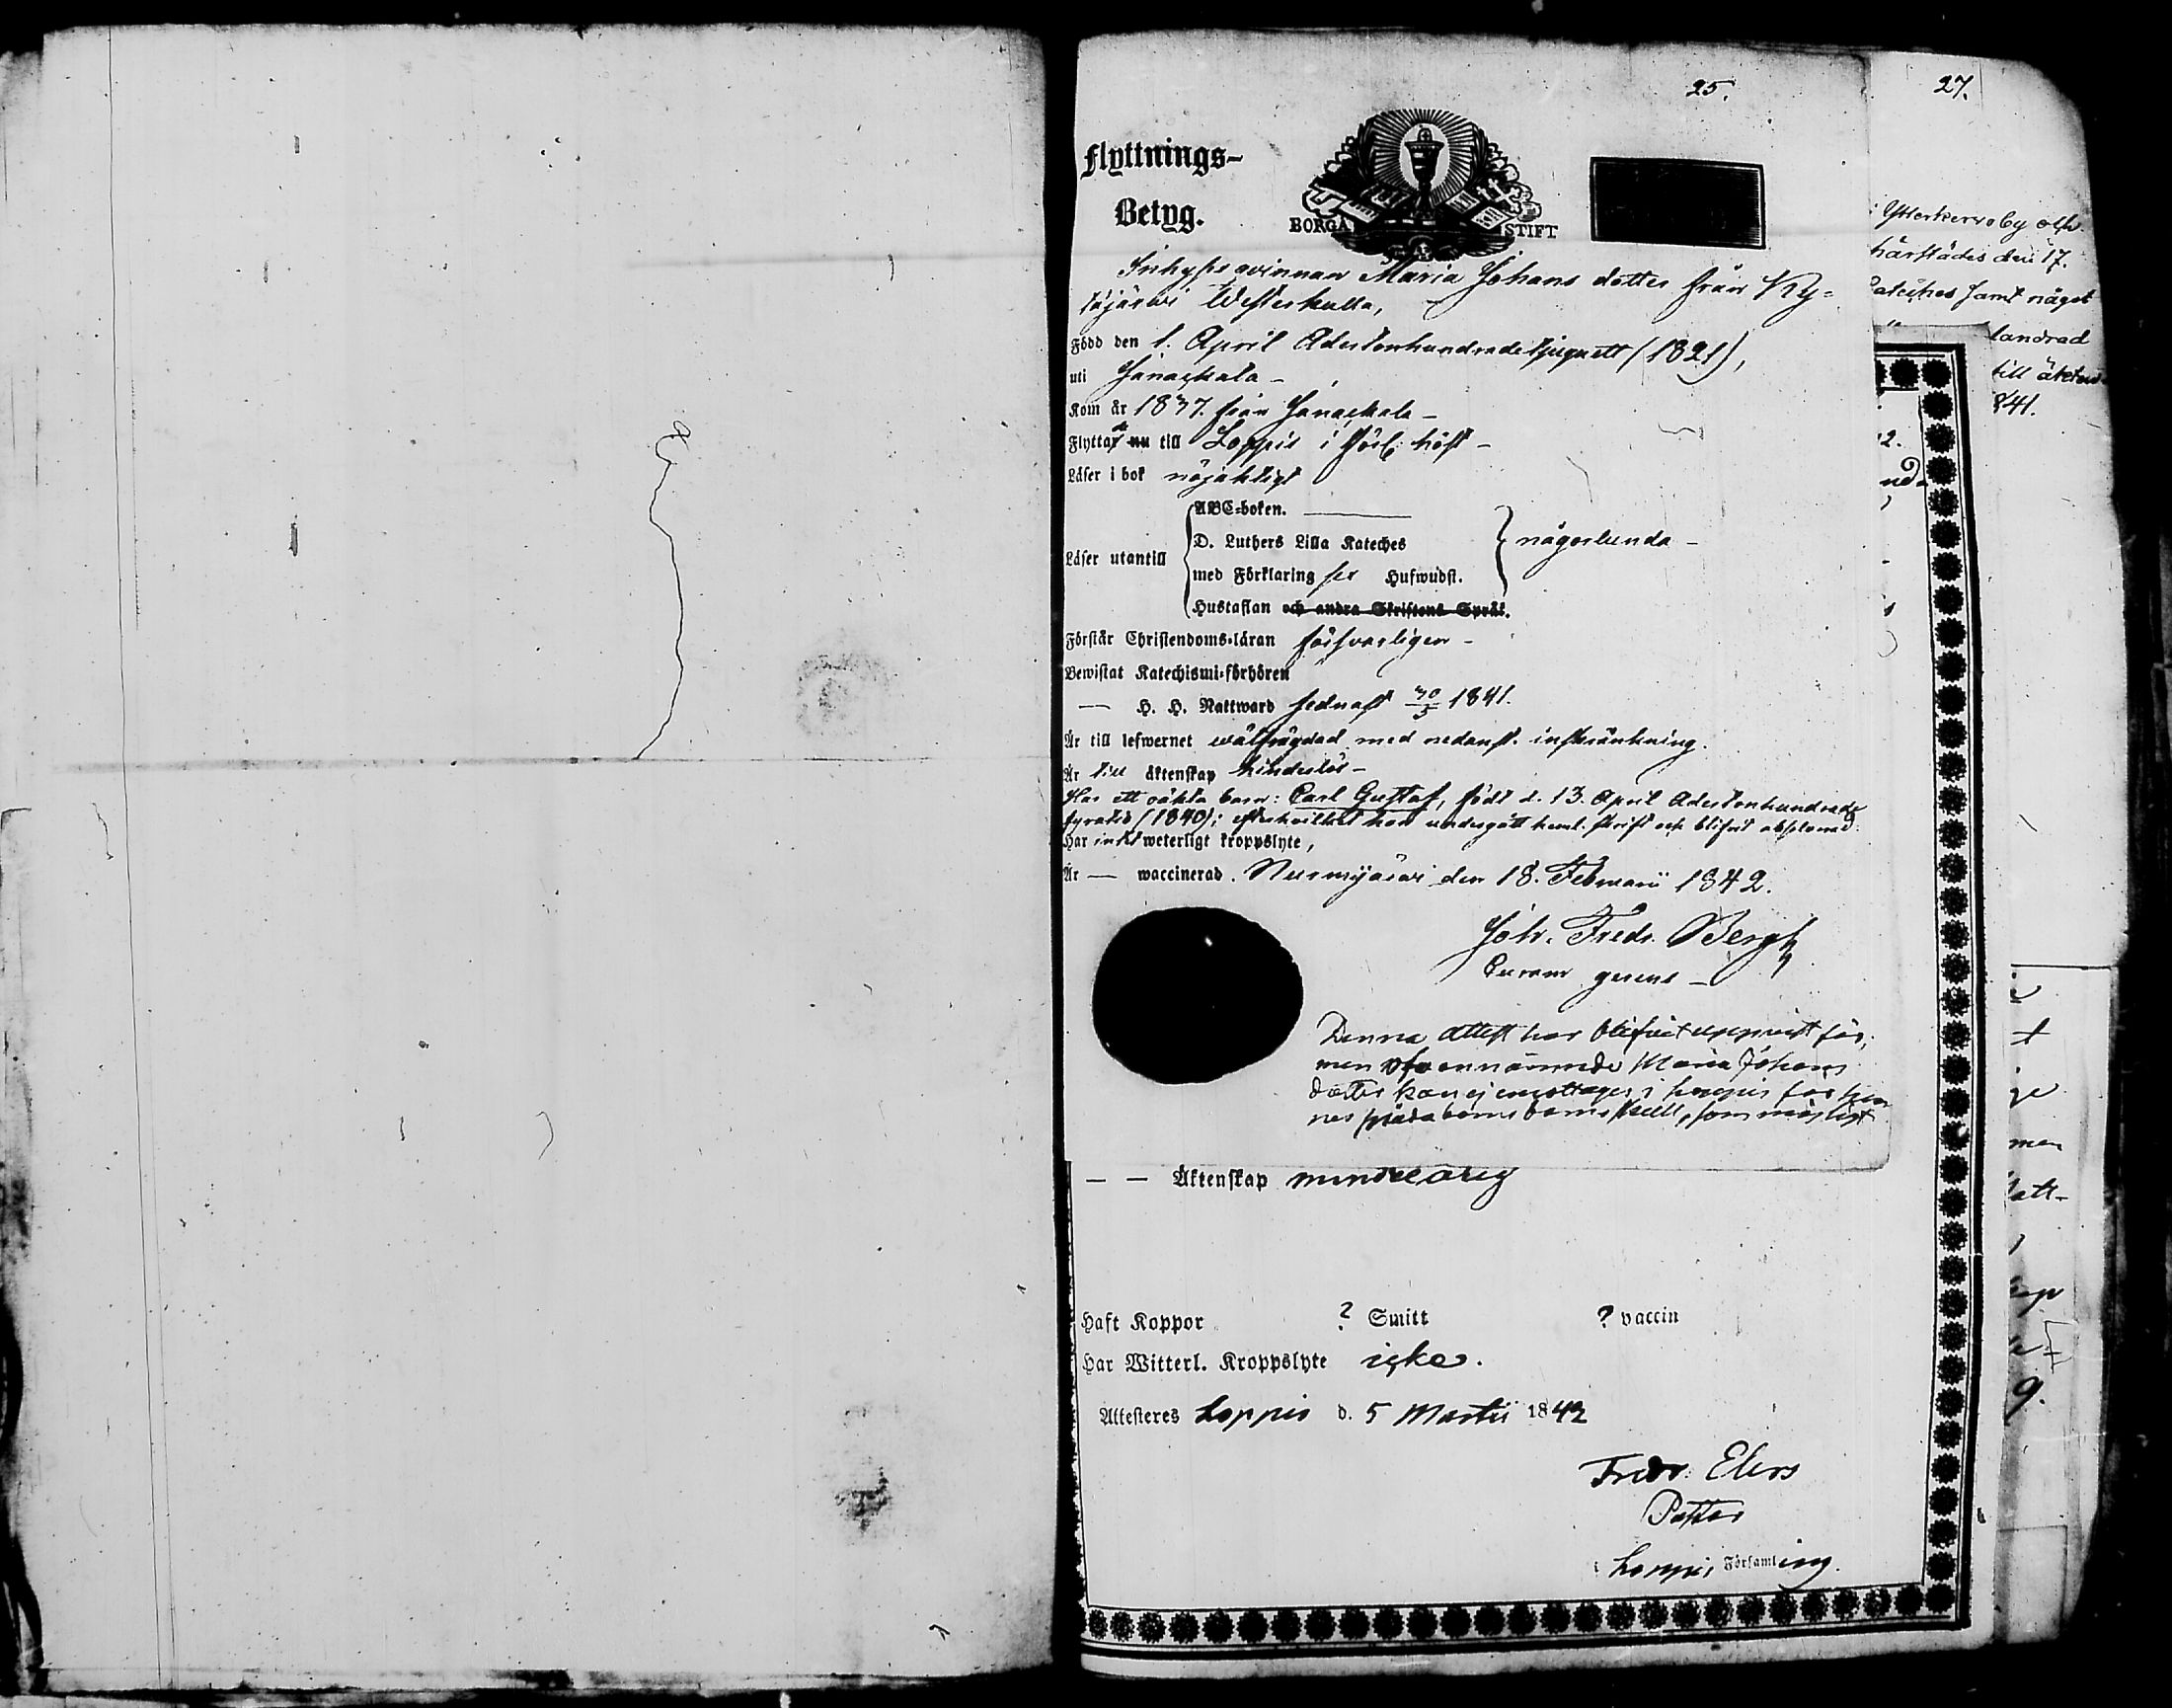 25.
Flyttnings-
Betyg.
BORGÅ STIFT
Inhyses qvinnan Maria Johans dotter från Ky=
töjärvi Westerkulla,
Född den 1. April Adertonhundradetjuguett (1821),
uti Janackala –
Kom år 1837. från Janackala –
Flyttade nu till Loppis i förl. höst –
Läser i bok nöjaktigt
Läser utantill
ABC=boken.
D. Luthers Lilla Kateches
med Förklaring sex Hufwudst.
Hustaflan och andra Skriftens Språk.
någorlunda –
Förstår Christendoms=läran försvarligen –
Bewistat Katechismi=förhören
— H. H. Nattward sednast 30/5 1841.
Är till lefwernet välfrägdad med nedanst. inskränkning.
Är till äktenskap hinderlös –
Har ett oäkta barn: Carl Gustaf, född d. 13. April Adertonhundrade
fyratio (1840); efter hvilket hon undergått heml. skrift och blifvit absolverad.
Har intet weterligt kroppslyte,
Är — waccinerad. Nurmijärvi den 18. Februarii 1842.
Joh. Fredr. Bergh
Curam gerens –
Denna attest har blifvit uppvist för,
men ofvannämnde Maria Johans
dotter kan ej emottagas i Loppis för hen
nes späda barns skull, som möjligt
— — Äktenskap minderårig
Haft Koppor ? Smitt ? vaccin
Har Witterl. Kroppslyte icke.
Attesteres Loppis d. 5 Martii 1842
Fredr. Elers
Pastor
i Loppis Församling.
27.
by och
härstädes den 17.
samt något
landrad
till äkten
841.